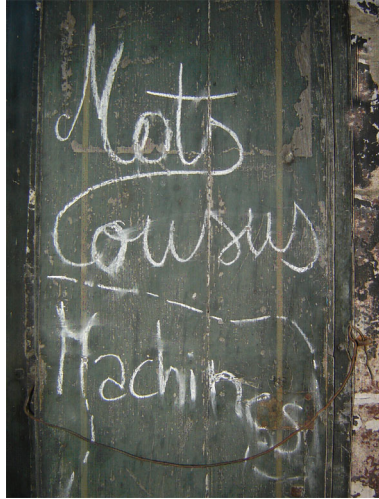 Mots
Cousus
Machines